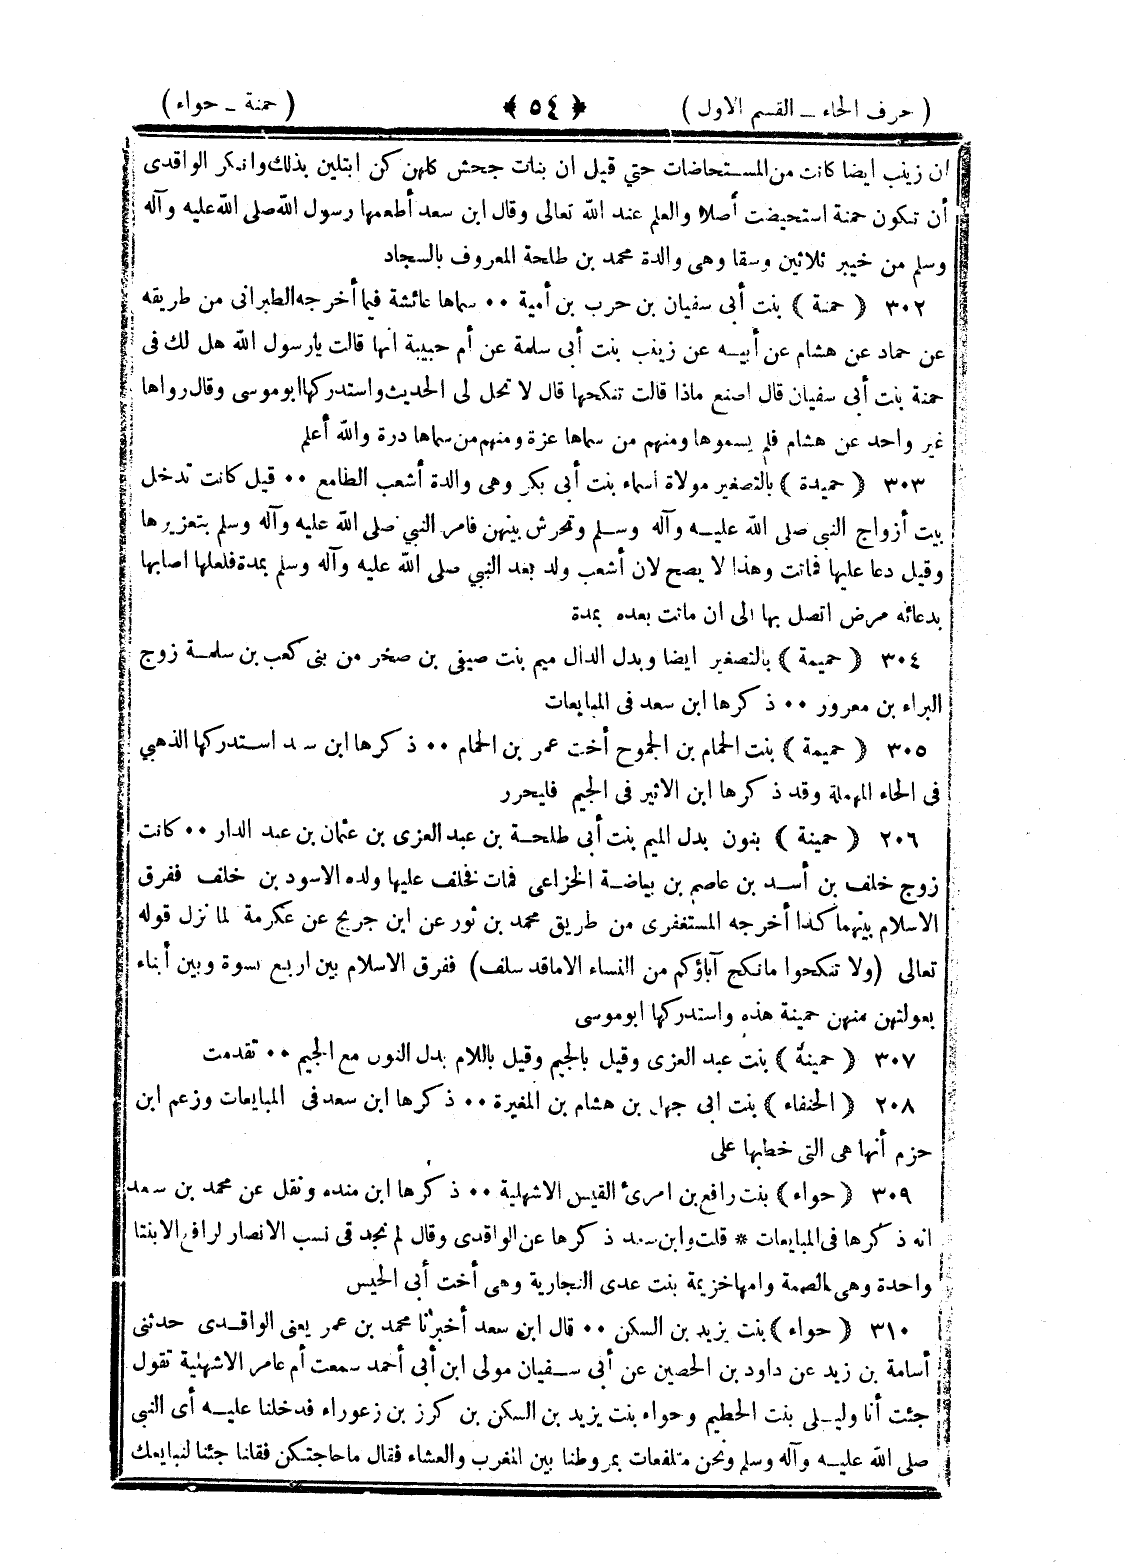 ( حرف الحاء – القسم الاول ) ﴿ ٥٤ ﴾ ( حمنة – حواء )
ان زينب ايضا كانت من المستحاضات حتي قيل ان بنات جحش كلهن كن ابتلين بذلك وانكر الواقدى
أن تكون حمنة استحيضت أصلا والعلم عند الله تعالى وقال ابن سعد أطعمها رسول الله صلى الله عليه وآله
وسلم من خيبر ثلاثين وسقا وهى والدة محمد بن طلحة المعروف بالسجاد
٣٠٢ ﴿ حمنة ﴾ بنت أبى سفيان بن حرب بن أمية ٠٠ سماها عائشة فيما أخرجه الطبرانى من طريقه
عن حماد عن هشام عن أبيه عن زينب بنت أبى سلمة عن أم حبيبة انها قالت يارسول الله هل لك فى
حمنة بنت أبى سفيان قال اصنع ماذا قالت تنكحها قال لا تحل لى الحديث واستدركها ابوموسى وقال رواها
غير واحد عن هشام فلم يسموها ومنهم من سماها عزة ومنهم من سماها درة والله أعلم
٣٠٣ ﴿ حميدة ﴾ بالتصغير مولاة اسماء بنت أبى بكر وهى والدة أشعب الطامع ٠٠ قيل كانت تدخل
بيت أزواج النبى صلى الله عليه وآله وسلم وتحرش بينهن فامر النبي صلى الله عليه وآله وسلم بتعزيرها
وقيل دعا عليها فماتت وهذا لا يصح لان أشعب ولد بعد النبي صلى الله عليه وآله وسلم بمدة فلعلها اصابها
بدعائه مرض اتصل بها الى ان ماتت بعده بمدة
٣٠٤ ﴿ حميمة ﴾ بالتصغير ايضا وبدل الدال ميم بنت صيفى بن صخر من بنى كعب بن سلمة زوج
البراء بن معرور ٠٠ ذكرها ابن سعد فى المبايعات
٣٠٥ ﴿ حميمة ﴾ بنت الحمام بن الجموح أخت عمر بن الحمام ٠٠ ذكرها ابن سعد استدركها الذهبي
فى الحاء المهملة وقد ذكرها ابن الاثير فى الجيم فليحرر
٢٠٦ ﴿ حمينة ﴾ بنون بدل الميم بنت أبى طلحة بن عبد العزى بن عثمان بن عبد الدار ٠٠ كانت
زوج خلف بن أسد بن عاصم بن بياضة الخزاعى فمات فخلف عليها ولده الاسود بن خلف ففرق
الاسلام بينهما كذا أخرجه المستغفرى من طريق محمد بن ثور عن ابن جريج عن عكرمة لما نزل قوله
تعالى (ولا تنكحوا مانكح آباؤكم من النساء الاماقد سلف) ففرق الاسلام بين اربع نسوة وبين أبناء
بعولتهن منهن حمينة هذه واستدركها ابوموسى
٣٠٧ ﴿ حمينة ﴾ بنت عبد العزى وقيل بالجيم وقيل باللام بدل النون مع الجيم ٠٠ تقدمت
٢٠٨ ﴿ الحنفاء ﴾ بنت ابى جهل بن هشام بن المغيرة ٠٠ ذكرها ابن سعد فى المبايعات وزعم ابن
حزم أنها هى التى خطبها على
٣٠٩ ﴿ حواء ﴾ بنت رافع بن امرئ القيس الاشهلية ٠٠ ذكرها ابن منده ونقل عن محمد بن سعد
انه ذكرها فى المبايعات * قلت وابن سعد ذكرها عن الواقدى وقال لم نجد فى نسب الانصار لرافع الابنتا
واحدة وهى الصمة وامها خزيمة بنت عدى النجارية وهى أخت أبى الحيس
٣١٠ ﴿ حواء ﴾ بنت يزيد بن السكن ٠٠ قال ابن سعد أخبرنا محمد بن عمر يعنى الواقدى حدثنى
أسامة بن زيد عن داود بن الحصين عن أبى سفيان مولى ابن أبى أحمد سمعت أم عامر الاشهلية تقول
جئت أنا وليلى بنت الحطيم وحواء بنت يزيد بن السكن بن كرز بن زعوراء فدخلنا عليه أى النبى
صلى الله عليه وآله وسلم ونحن متلفعات بمروطنا بين المغرب والعشاء فقال ماحاجتكن فقلنا جئنا لنبايعك